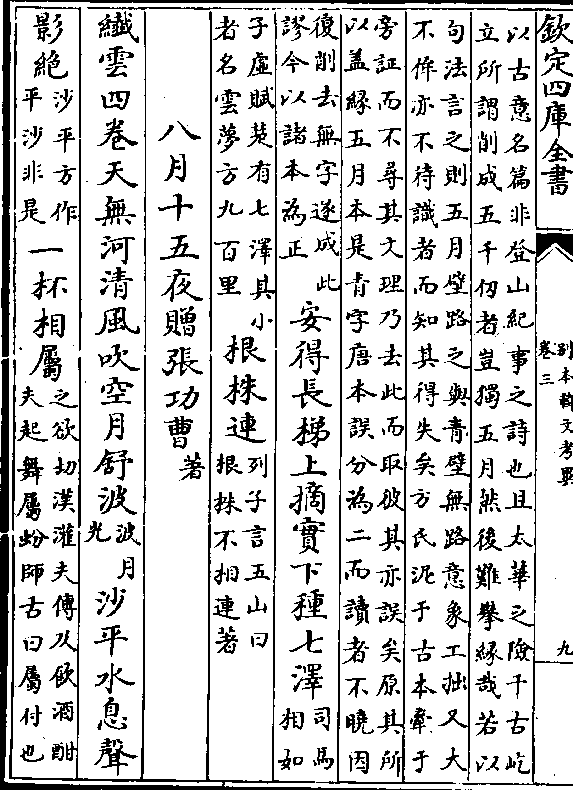 欽定四庫全書
別本韓文考異
卷三
九
以古意名篇非登山紀事之詩也且太華之險千古屹
立所謂削成五千仞者豈獨五月然後難攀緣哉若以
句法言之則五月壁路之與青壁無路意象工拙又大
不侔亦不待識者而知其得失矣方氏泥于古本牽于
旁証而不尋其文理乃去此而取彼其亦誤矣原其所
以盖緣五月本是青字唐本誤分為二而讀者不曉因
復削去無字遂成此
謬今以諸本為正
安得長梯上摘實下種七澤
司馬
相如
子虛賦楚有七澤其小
者名雲夢方九百里
根株連
列子言五山曰
根株不相連著
八月十五夜贈張功曹
著
纖雲四卷天無河清風吹空月舒波
波月
光
沙平水息聲
影絶
沙平方作
平沙非是
一杯相屬
之欲切漢灌夫傳及飲酒酣
夫起舞屬蚡師古曰屬付也